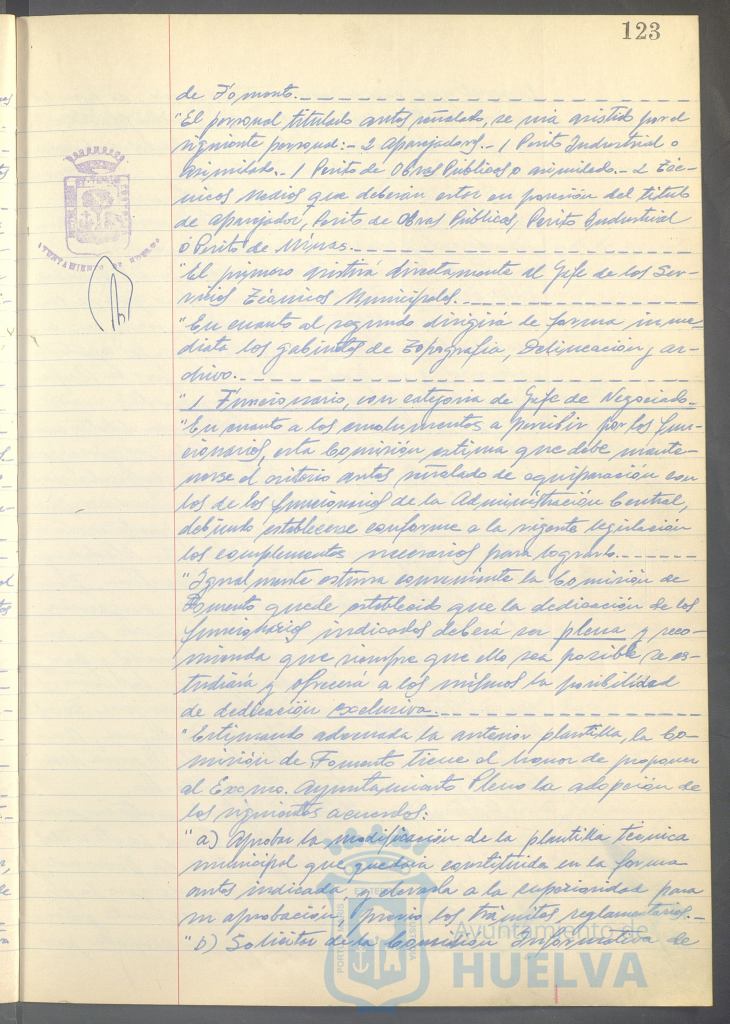 123
de Fomento.
"El personal titulado antes señalado, se vía asistido por el
siguiente personal:- 2 Aparejadores.- 1 Perito Industrial o
asimilado.- 1 Perito de Obras Públicas o asimilado.- 2 Téc-
nicos Medios que deberán estar en posesión del título
de Aparejador, Perito de Obras Públicas, Perito Industrial
o Perito de Minas.
"El primero asistirá directamente al Jefe de los Ser-
vicios Técnicos Municipales.
"En cuanto al segundo dirigirá de forma inme-
diata los gabinetes de Topografía, Delineación y ar-
chivo.
"1 Funcionario, con categoría de Jefe de Negociado.
"En cuanto a los emolumentos a percibir por los fun-
cionarios, esta Comisión estima que debe mante-
nerse el criterio antes señalado de equiparación con
los de los funcionarios de la Administración Central,
debiendo establecerse conforme a la vigente legislación
los complementos necesarios para lograrlo.
"Igualmente estima conveniente la Comisión de
Fomento quede establecido que la dedicación de los
funcionarios indicados deberá ser plena y reco-
mienda que siempre que ello sea posible se es-
tudiará y ofrecerá a los mismos la posibilidad
de dedicación exclusiva.
"Estimando adecuada la anterior plantilla, la Co-
misión de Fomento tiene el honor de proponer
al Excmo. Ayuntamiento Pleno la adopción de
los siguientes acuerdos:
"a) Aprobar la modificación de la plantilla técnica
municipal que quedaría constituida en la forma
antes indicada, y elevarla a la superioridad para
su aprobación, previo los trámites reglamentarios.-
"b) Solicitar de la Comisión Informativa de
AYUNTAMIENTO DE HUELVA
Ayuntamiento de
HUELVA
PORTUS MARIS ET TERRAE CUSTODIA